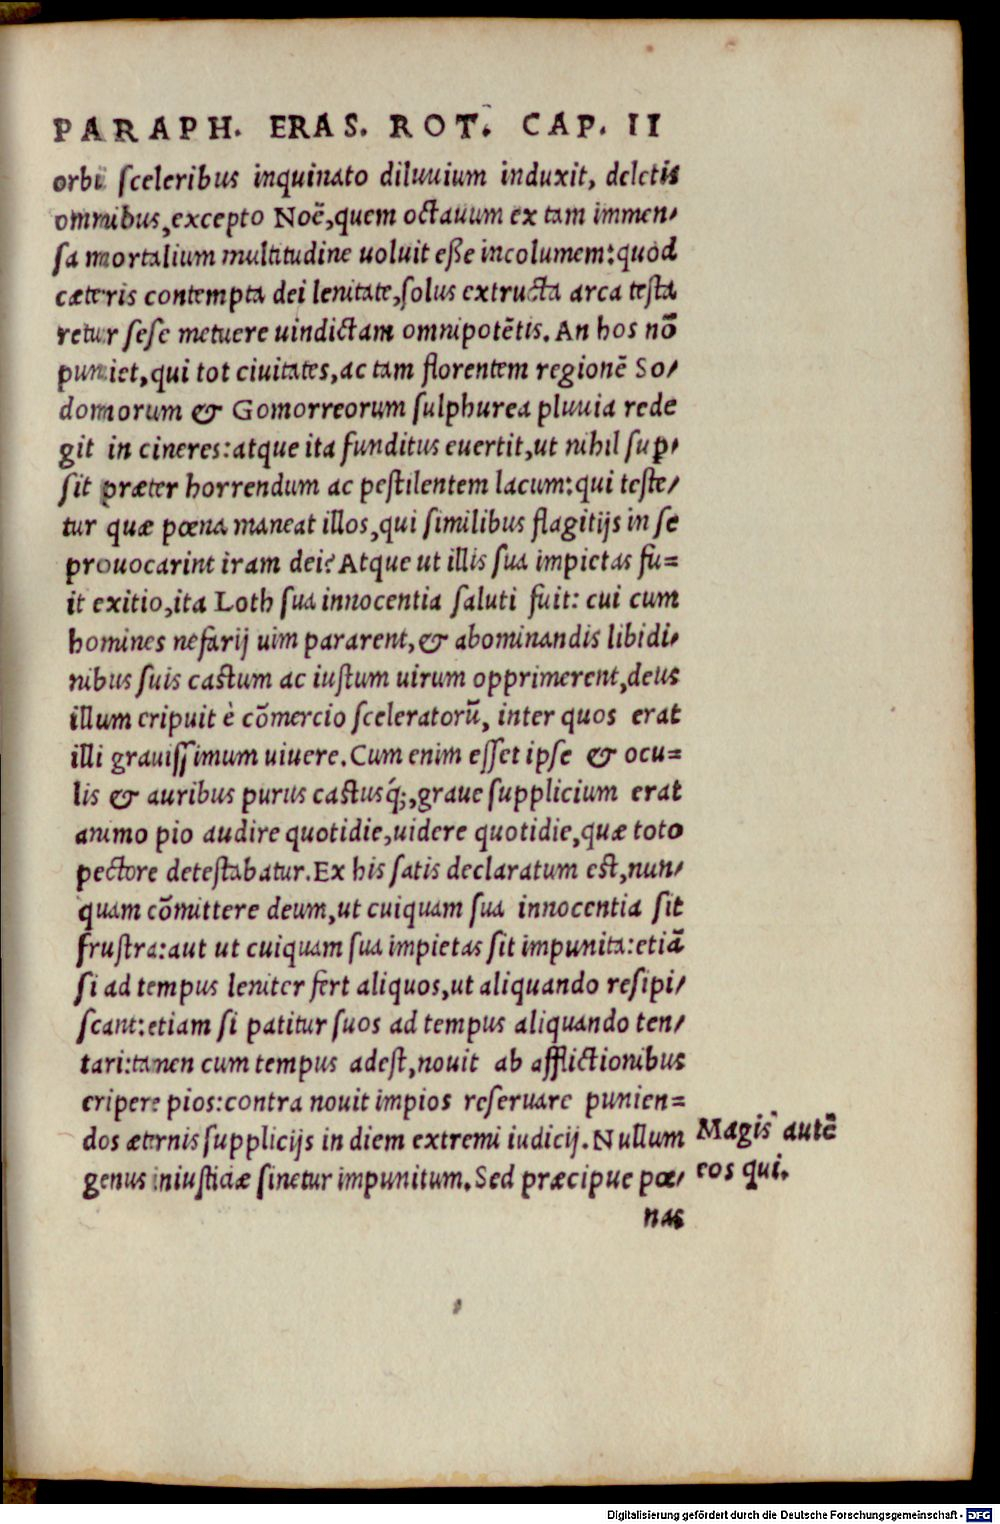 PARAPH. ERAS. ROT. CAP. II
orbi ſceleribus inquinato diluuium induxit, deletis
omnibus, excepto Noẽ, quem octauum ex tam immen⸗
ſa mortalium multitudine uoluit eſſe incolumem: quòd
cæteris contempta dei lenitate, ſolus extructa arca teſta
retur ſeſe metuere uindictam omnipotẽtis. An hos nõ
puniet, qui tot ciuitates, ac tam florentem regionẽ So⸗
domorum & Gomorreorum ſulphurea pluuia rede
git in cineres: atque ita funditus euertit, ut nihil ſup⸗
ſit præter horrendum ac peſtilentem lacum: qui teſte⸗
tur quæ pœna maneat illos, qui ſimilibus flagitijs in ſe
prouocarint iram dei? Atque ut illis ſua impietas fu=
it exitio, ita Loth ſua innocentia ſaluti fuit: cui cum
homines nefarij uim pararent, & abominandis libidi⸗
nibus ſuis caſtum ac iuſtum uirum opprimerent, deus
illum eripuit è cõmercio ſceleratorũ, inter quos erat
illi grauiſſimum uiuere. Cum enim eſſet ipſe & ocu=
lis & auribus purus caſtusq́;, graue ſupplicium erat
animo pio audire quotidie, uidere quotidie, quæ toto
pectore deteſtabatur. Ex his ſatis declaratum eſt, nun⸗
quam cõmittere deum, ut cuiquam ſua innocentia ſit
fruſtra: aut ut cuiquam ſua impietas ſit impunita: etiã
ſi ad tempus leniter fert aliquos, ut aliquando reſipi⸗
ſcant: etiam ſi patitur ſuos ad tempus aliquando ten⸗
tari: tamen cum tempus adeſt, nouit ab afflictionibus
eripere pios: contra nouit impios reſeruare punien=
dos æternis ſupplicijs in diem extremi iudicij. Nullum
genus iniuſticiæ ſinetur impunitum. Sed præcipue pœ⸗
Magis autẽ
eos qui.
nas
Digitalisierung gefördert durch die Deutsche Forschungsgemeinschaft - DFG